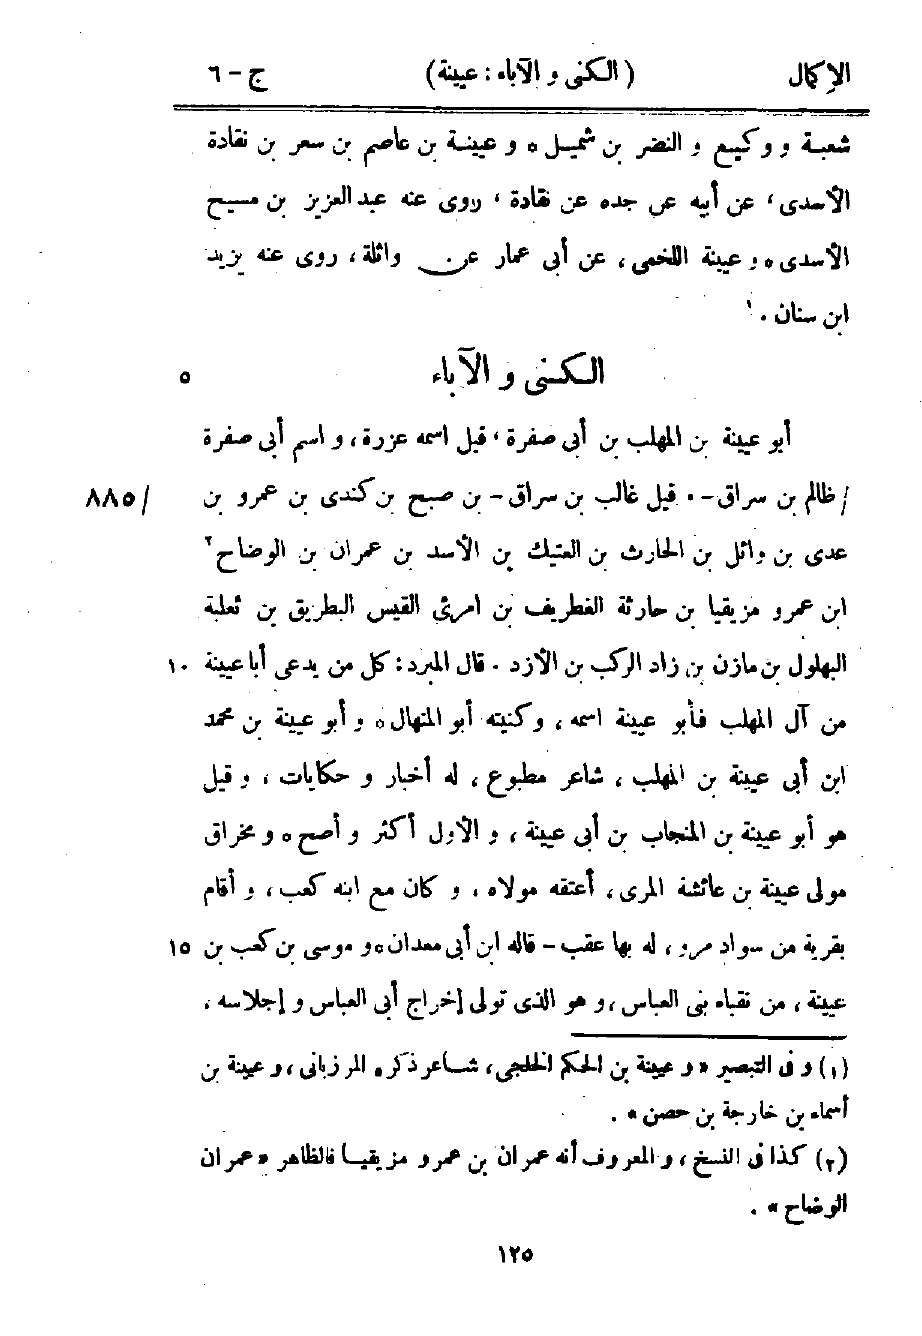 الإكمال (الكنى و الآباء : عيينة) ج - ٦
شعبة و وكيع و النضر بن شميل ٥ و عيينة بن عاصم بن سعر بن نقادة
الأسدى، عن أبيه عن جده عن نقادة، روى عنه عبد العزيز بن مسيح
الأسدى ٥ و عيينة اللخمى، عن أبى عمار عن واثلة، روى عنه يزيد
ابن سنان . ١
الكنى و الآباء ٥
أبو عيينة بن المهلب بن أبى صفرة، قيل اسمه عزرة، و اسم أبى صفرة
/ ظالم بن سراق - . قيل غالب بن سراق - بن صبح بن كندى بن عمرو بن / ٨٨٥
عدى بن وائل بن الحارث بن العتيك بن الأسد بن عمران بن الوضاح ٢
ابن عمرو مزيقيا بن حارثة الغطريف بن امرئ القيس البطريق بن ثعلبة
البهلول بن مازن بن زاد الركب بن الأزد . قال المبرد : كل من يدعى أبا عيينة ١٠
من آل المهلب فأبو عيينة اسمه، وكنيته أبو المنهال ٥ و أبو عيينة بن محمد
ابن أبى عيينة بن المهلب، شاعر مطبوع، له أخبار و حكايات، و قيل
هو أبو عيينة بن المنجاب بن أبى عيينة، و الأول أكثر و أصح ٥ و مخراق
مولى عيينة بن عائشة المرى، أعتقه مولاه، و كان مع ابنه كعب، و أقام
بقرية من سواد مرو، له بها عقب - قاله ابن أبى معدان ٥ و موسى بن كعب بن ١٥
عيينة، من نقباء بنى العباس، و هو الذى تولى إخراج أبى العباس و إجلاسه،
(١) و فى التبصير « و عيينة بن الحكم الخلجى، شاعر ذكره المرزبانى، و عيينة بن
أسماء بن خارجة بن حصن » .
(٢) كذا فى النسخ، و المعروف أنه عمران بن عمرو مزيقيا فالظاهر « عمران
الوضاح » .
١٢٥